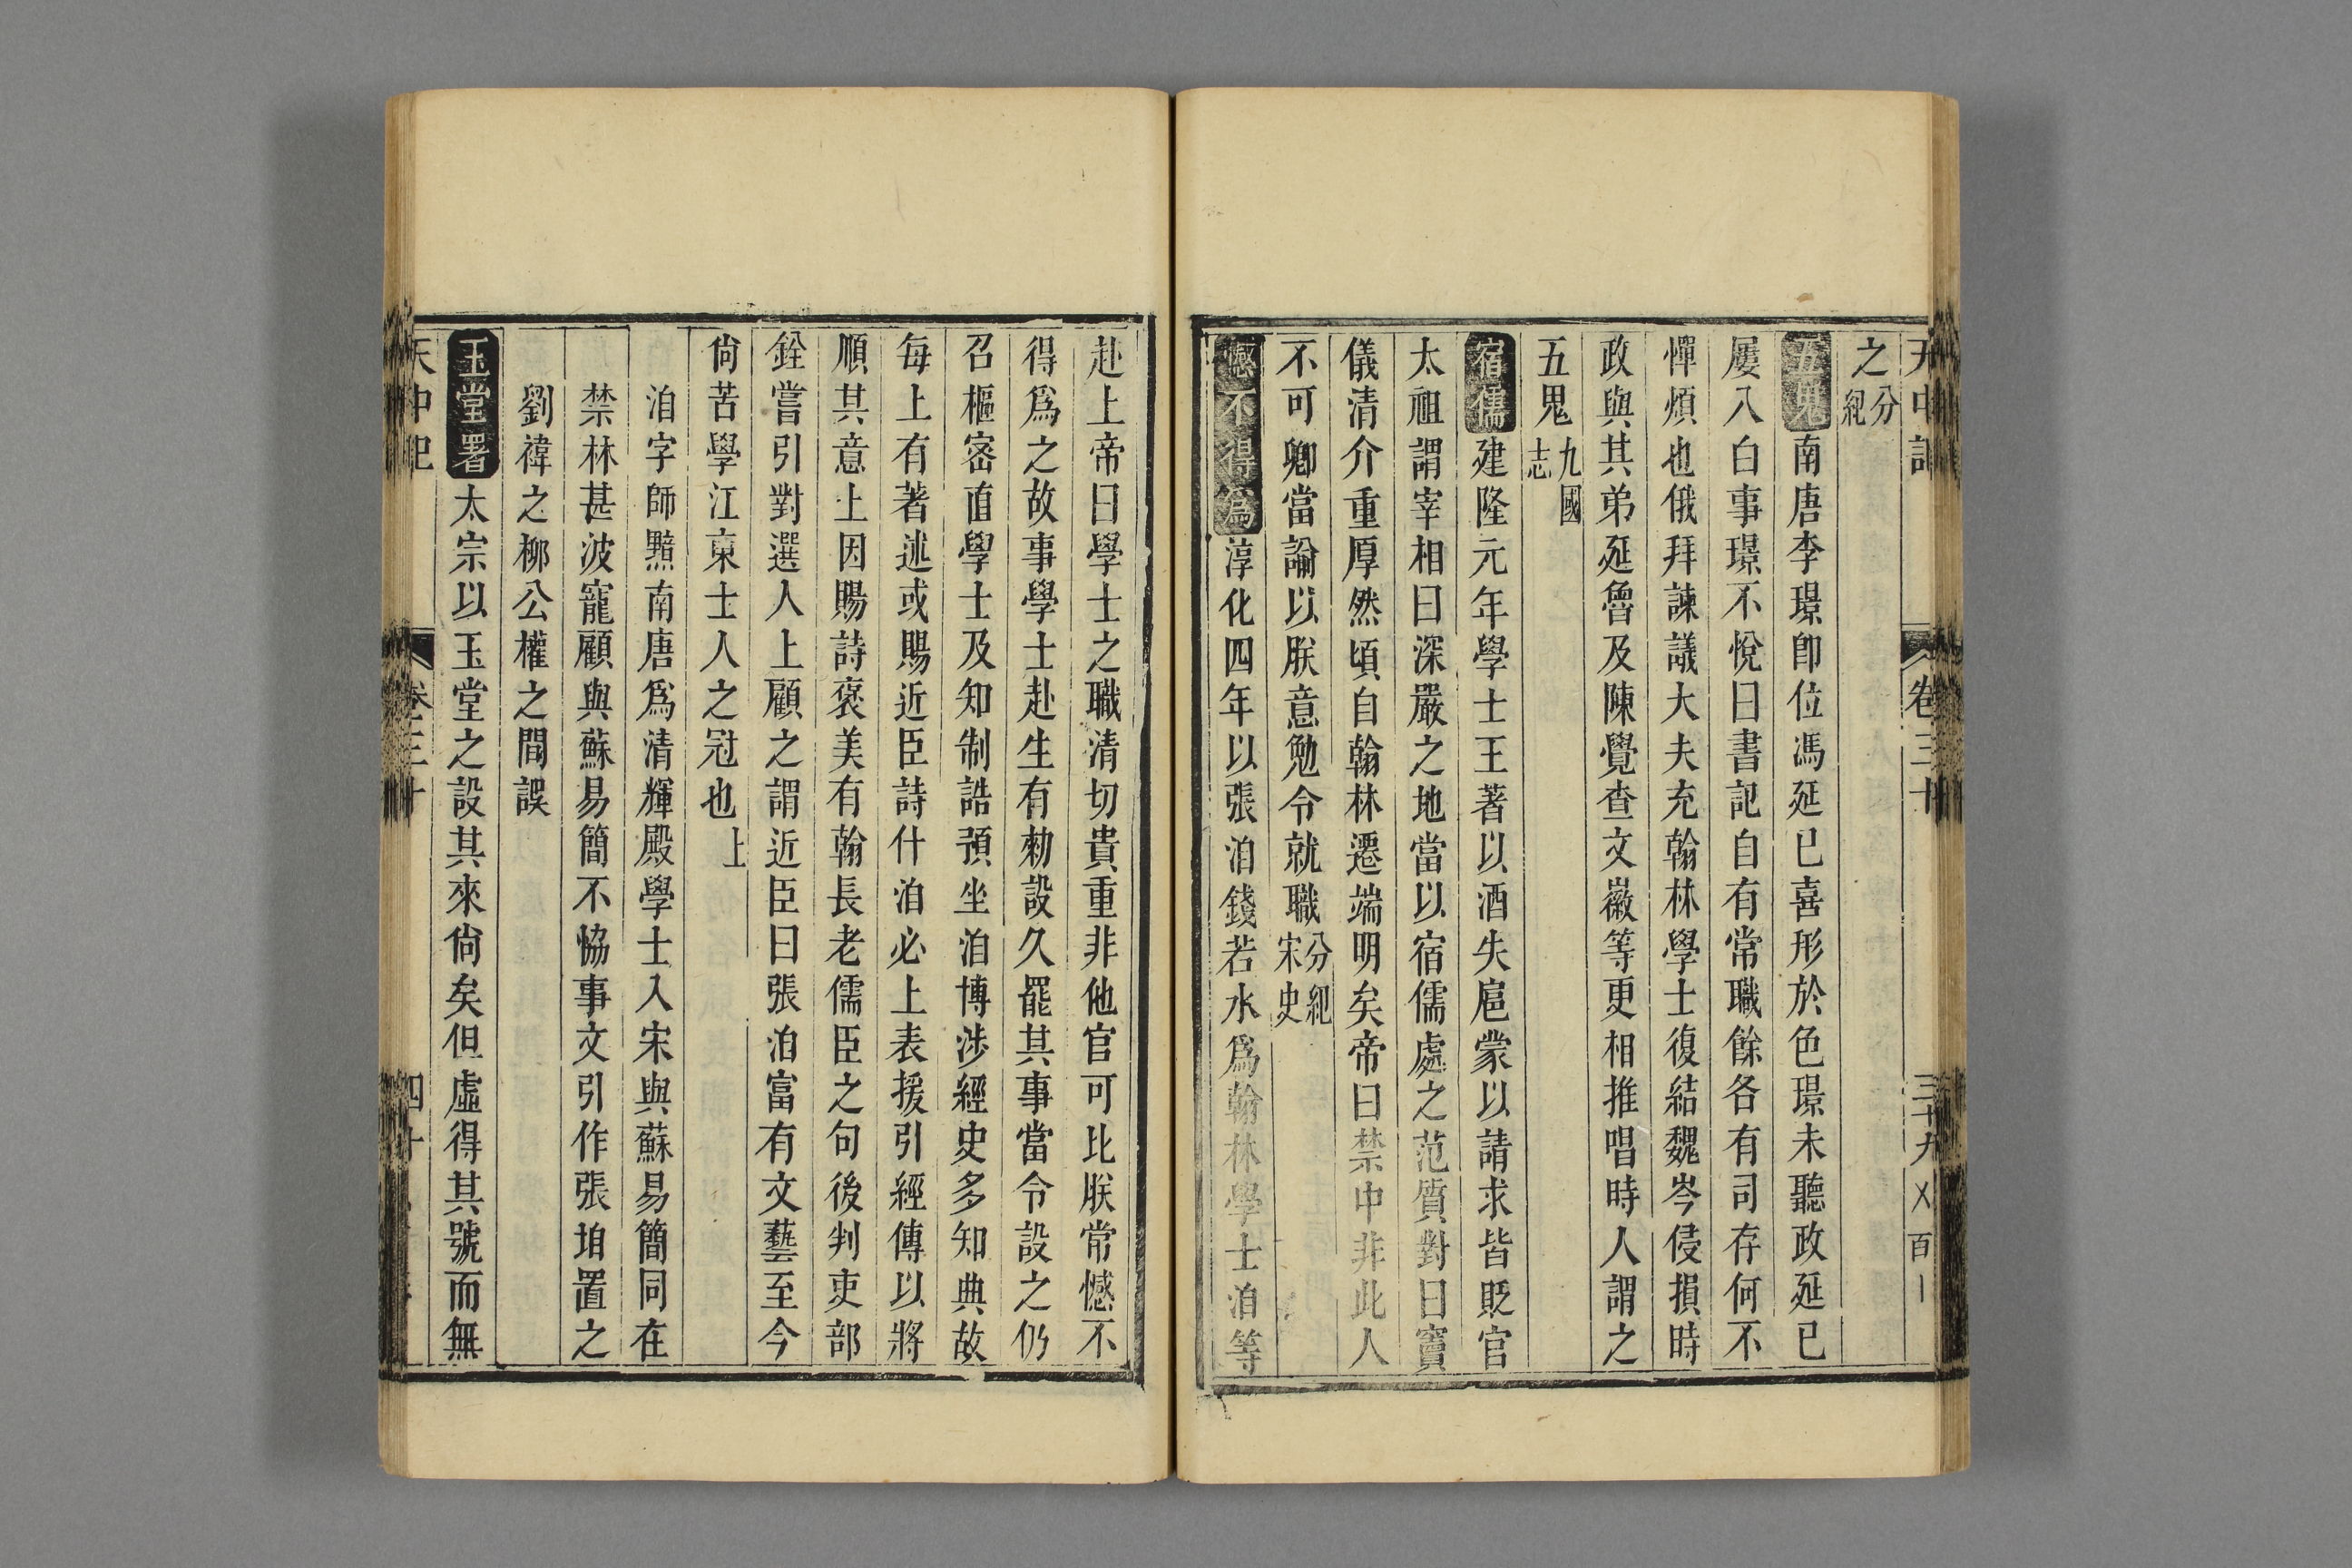 天中記 卷三十 三十九 乂百〡
之分紀
五鬼南唐李璟卽位馮延已喜形於色璟未聽政延已
屢入白事璟不悅曰書記自有常職餘各有司存何不
憚煩也俄拜諫議大夫充翰林學士復結魏岑侵損時
政與其弟延魯及陳覺查文徽等更相推唱時人謂之
五鬼九國志
宿儒建隆元年學士王著以酒失扈蒙以請求皆貶官
太祖謂宰相曰深嚴之地當以宿儒處之范質對曰竇
儀清介重厚然頃自翰林遷端明矣帝曰禁中非此人
不可卿當諭以朕意勉令就職分紀宋史
憾不得為淳化四年以張洎錢若水爲翰林學士洎等
赴上帝曰學士之職清切貴重非他官可比朕常憾不
得爲之故事學士赴生有勑設久罷其事當令設之仍
召樞密直學士及知制誥預坐洎博涉經史多知典故
每上有著述或賜近臣詩什洎必上表援引經傳以將
順其意上因賜詩褒美有翰長老儒臣之句後判吏部
銓嘗引對選人上顧之謂近臣曰張洎富有文藝至今
尙苦學江東士人之冠也上
洎字師黯南唐爲清輝殿學士入宋與蘇易簡同在
禁林甚波寵顧與蘇易簡不恊事文引作張垍置之
劉禕之柳公權之間誤
玉堂署太宗以玉堂之設其來尙矣但虛得其號而無
天中記 卷三十 四十